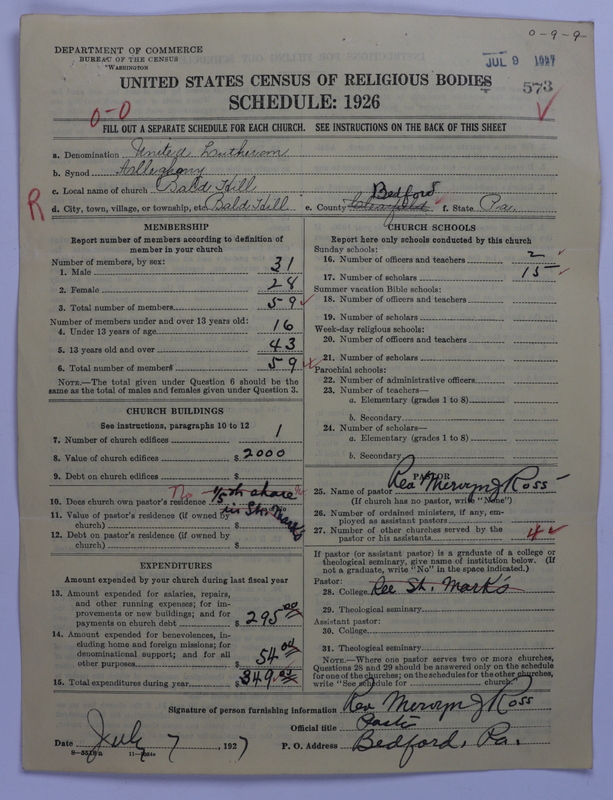 0-9-9
DEPARTMENT OF COMMERCE
BUREAU OF THE CENSUS
WASHINGTON
JUL 9 1927
UNITED STATES CENSUS OF RELIGIOUS BODIES
573
SCHEDULE: 1926
0-0
FILL OUT A SEPARATE SCHEDULE FOR EACH CHURCH. SEE INSTRUCTIONS ON THE BACK OF THIS SHEET
a. Denomination United Lutheran
b. Synod Allegheny
c. Local name of church Bald Hill
R d. City, town, village, or township, etc. Bald Hill e. County Clearfield Bedford f. State Pa.
MEMBERSHIP
Report number of members according to definition of
member in your church
Number of members, by sex:
1. Male 31
2. Female 28
3. Total number of members 59
Number of members under and over 13 years old:
4. Under 13 years of age 16
5. 13 years old and over 43
6. Total number of members 59
NOTE.—The total given under Question 6 should be the
same as the total of males and females given under Question 3.
CHURCH BUILDINGS
See instructions, paragraphs 10 to 12
7. Number of church edifices 1
8. Value of church edifices $ 2000
9. Debt on church edifices $
10. Does church own pastor's residence No 1/5th share
in St. Mark's
11. Value of pastor's residence (if owned by
church) $
12. Debt on pastor's residence (if owned by
church) $
EXPENDITURES
Amount expended by your church during last fiscal year
13. Amount expended for salaries, repairs,
and other running expenses; for im-
provements or new buildings; and for
payments on church debt $ 295.00
14. Amount expended for benevolences, in-
cluding home and foreign missions; for
denominational support; and for all
other purposes $ 54.04
15. Total expenditures during year $ 349
CHURCH SCHOOLS
Report here only schools conducted by this church
Sunday schools:
16. Number of officers and teachers 2
17. Number of scholars 15
Summer vacation Bible schools:
18. Number of officers and teachers
19. Number of scholars
Week-day religious schools:
20. Number of officers and teachers
21. Number of scholars
Parochial schools:
22. Number of administrative officers
23. Number of teachers—
a. Elementary (grades 1 to 8)
b. Secondary
24. Number of scholars—
a. Elementary (grades 1 to 8)
b. Secondary
PASTOR
25. Name of pastor Rev Mervyn J Ross
(If church has no pastor, write "None")
26. Number of ordained ministers, if any, em-
ployed as assistant pastors
27. Number of other churches served by the
pastor or his assistants 4
If pastor (or assistant pastor) is a graduate of a college or
theological seminary, give name of institution below. (If
not a graduate, write "No" in the space indicated.)
Pastor:
28. College See St. Mark's
29. Theological seminary
Assistant pastor:
30. College
31. Theological seminary
NOTE.—Where one pastor serves two or more churches,
Questions 28 and 29 should be answered only on the schedule
for one of the churches; on the schedules for the other churches,
write "See schedule for church."
Signature of person furnishing information Rev Mervyn J Ross
Official title Pastor
Date July 7, 1927 P. O. Address Bedford, Pa.